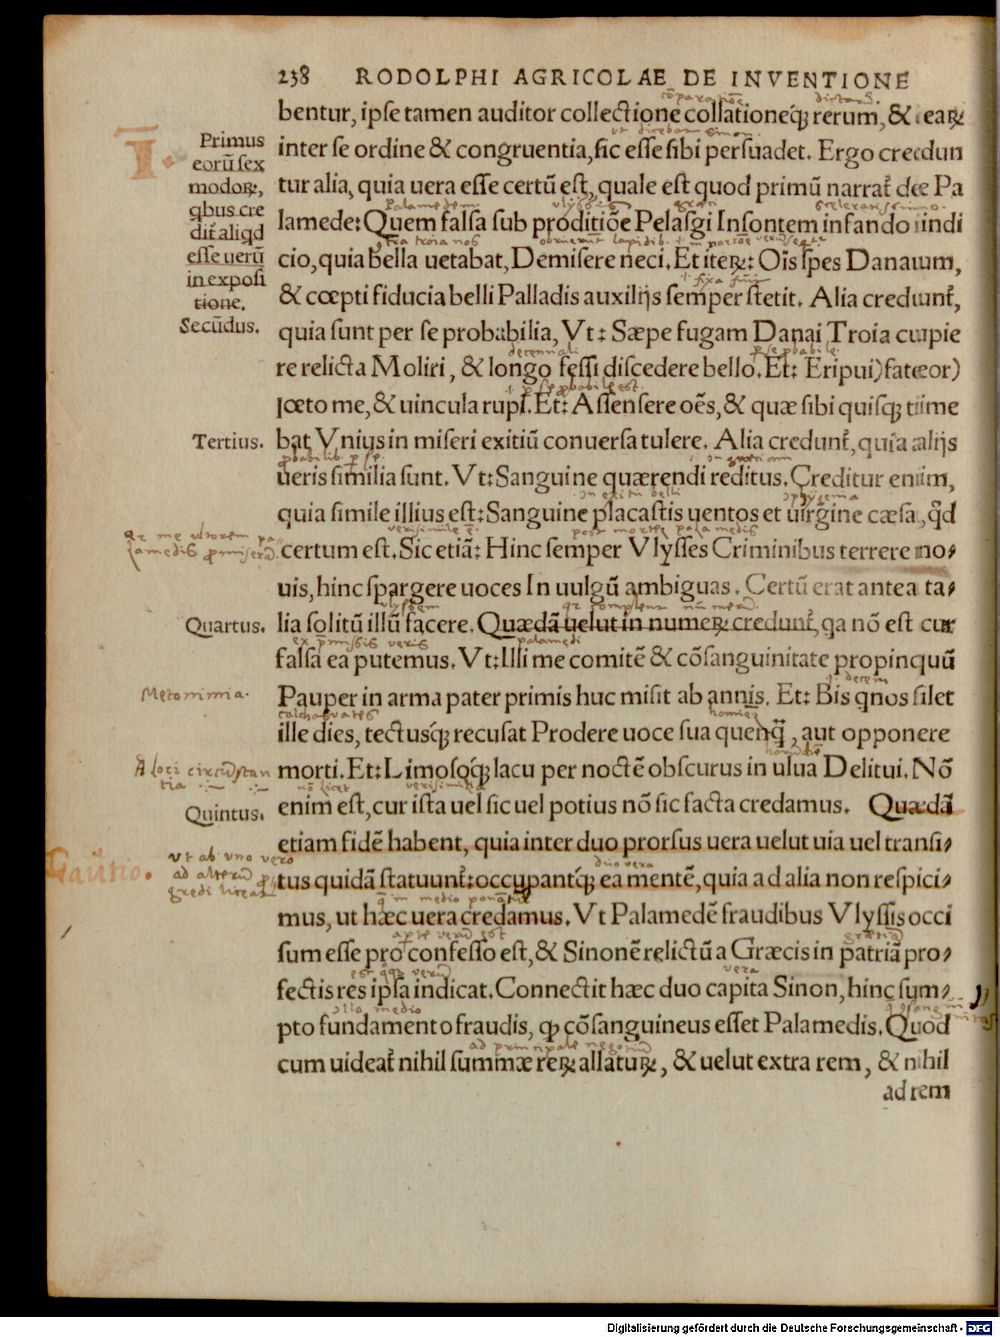 238 RODOLPHI AGRICOLAE DE INVENTIONE
bentur, ipse tamen auditor collectione collationeq́ꝫ rerum, & earꝝ
inter se ordine & congruentia, sic esse sibi persuadet. Ergo credun
tur alia, quia uera esse certũ est, quale est quod primũ narrat̃ de Pa
lamede: Quem falsa sub proditiõe Pelasgi Insontem infando indi
cio, quia bella uetabat, Demisere neci. Et iteꝝ: Oĩs spes Danaum,
& cœpti fiducia belli Palladis auxilijs semper stetit. Alia credunt̃,
quia sunt per se probabilia, Vt: Sæpe fugam Danai Troia cupie
re relicta Moliri, & longo fessi discedere bello. Et: Eripui) fateor)
lœto me, & uincula rupi. Et: Assensere oẽs, & quæ sibi quisq́ꝫ time
bat Vnius in miseri exitiũ conuersa tulere. Alia credunt̃, quia alijs
ueris similia sunt. Vt: Sanguine quærendi reditus. Creditur enim,
quia simile illius est: Sanguine placastis uentos et uirgine cæsa, qd̃
certum est. Sic etiã: Hinc semper Vlysses Criminibus terrere no-
uis, hinc spargere uoces In uulgũ ambiguas. Certũ erat antea ta-
lia solitũ illũ facere. Quædã uelut in numeꝝ credunt̃, qa nõ est cur
falsa ea putemus. Vt: Illi me comitẽ & cõsanguinitate propinquũ
Pauper in arma pater primis huc misit ab annis. Et: Bis qnos silet
ille dies, tectusq́ꝫ recusat Prodere uoce sua quenq̃, aut opponere
morti. Et: Limosoq́ꝫ lacu per noctẽ obscurus in ulua Delitui. Nõ
enim est, cur ista uel sic uel potius nõ sic facta credamus. Quædã
etiam fidẽ habent, quia inter duo prorsus uera uelut uia uel transi-
tus quidã statuunt̃: occupantq́ꝫ ea mentẽ, quia ad alia non respici-
mus, ut hæc uera credamus. Vt Palamedẽ fraudibus Vlyssis occi
sum esse pro confesso est, & Sinonẽ relictũ a Græcis in patriã pro-
fectis res ipsa indicat. Connectit hæc duo capita Sinon, hinc sum-
pto fundamento fraudis, ꝙ cõsanguineus esset Palamedis. Quod
cum uideat̃ nihil summæ reꝝ allatuꝝ, & uelut extra rem, & nihil
ad rem
Primus
eorũ sex
modoꝝ,
qbus cre
dit̃ aliqd
esse uerũ
in exposi
tione.
Secũdus.
Tertius.
Quartus.
Metonimia.
A loci circũstan
tia
Quintus.
Cautio.
vt ab uno vero
ad alterũ
Digitalisierung gefördert durch die Deutsche Forschungsgemeinschaft - DFG